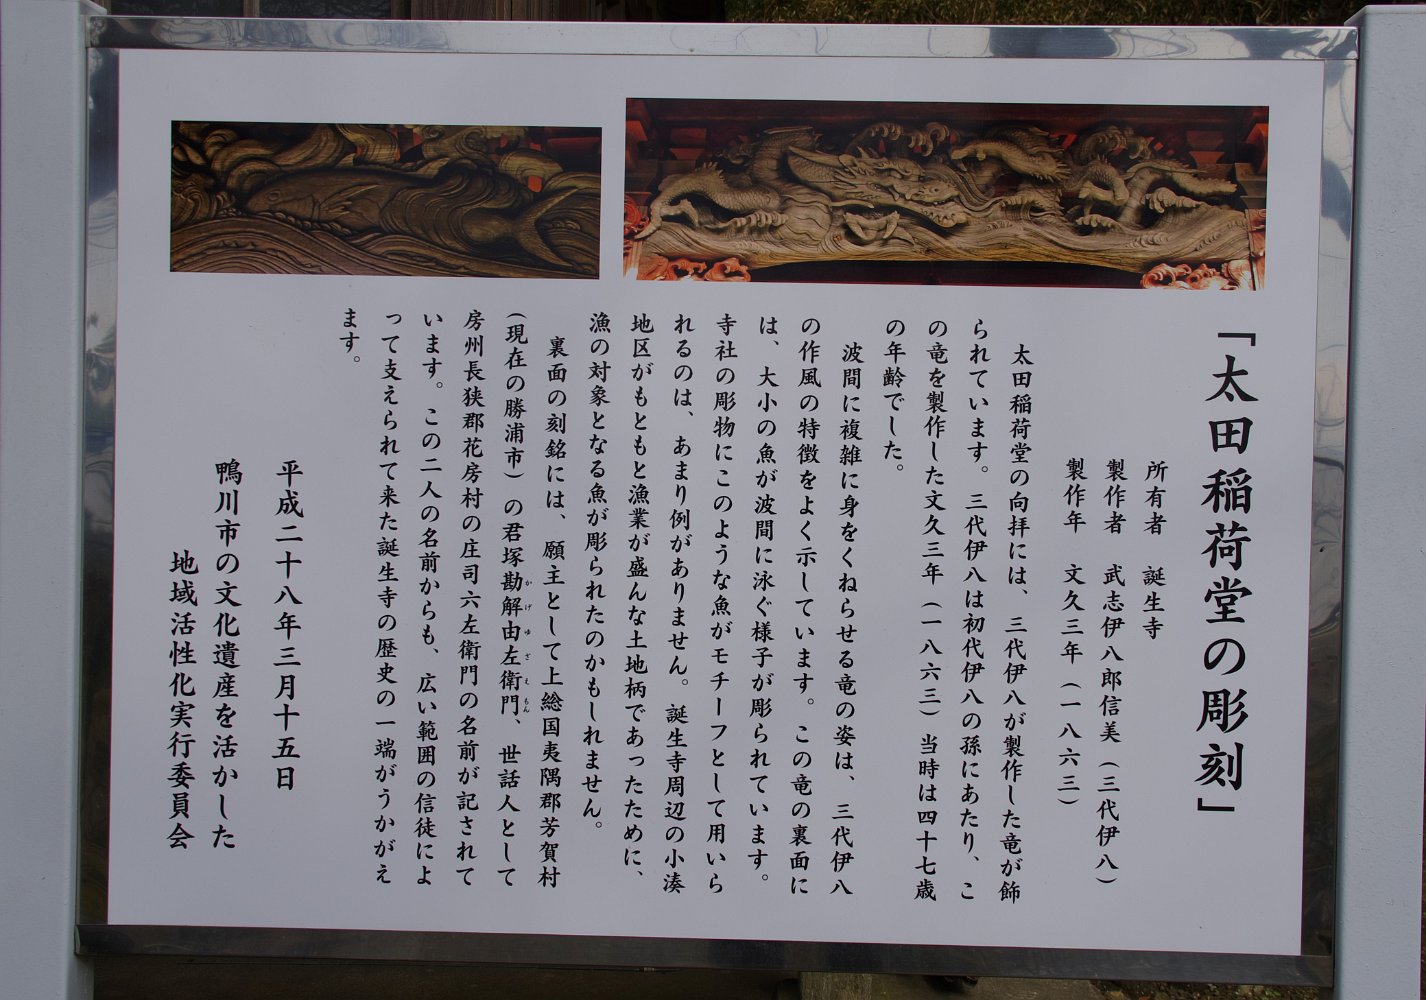 「太田稲荷堂の彫刻」
所有者　誕生寺
製作者　武志伊八郎信美（三代伊八）
製作年　文久三年（一八六三）
太田稲荷堂の向拝には、三代伊八が製作した竜が飾
られています。三代伊八は初代伊八の孫にあたり、こ
の竜を製作した文久三年（一八六三）当時は四十七歳
の年齢でした。
波間に複雑に身をくねらせる竜の姿は、三代伊八
の作風の特徴をよく示しています。この竜の裏面に
は、大小の魚が波間に泳ぐ様子が彫られています。
寺社の彫物にこのような魚がモチーフとして用いら
れるのは、あまり例がありません。誕生寺周辺の小湊
地区がもともと漁業が盛んな土地柄であったために、
漁の対象となる魚が彫られたのかもしれません。
裏面の刻銘には、願主として上総国夷隅郡芳賀村
（現在の勝浦市）の君塚勘解由左衛門、世話人として
かげゆざえもん
房州長狭郡花房村の庄司六左衛門の名前が記されて
います。この二人の名前からも、広い範囲の信徒によ
って支えられて来た誕生寺の歴史の一端がうかがえ
ます。
平成二十八年三月十五日
鴨川市の文化遺産を活かした
地域活性化実行委員会